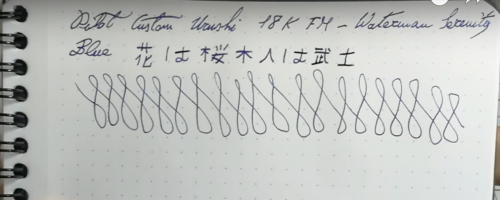 Pilot Custom Urushi 18K FM - Waterman Serenity
Blue 花は桜木人は武士